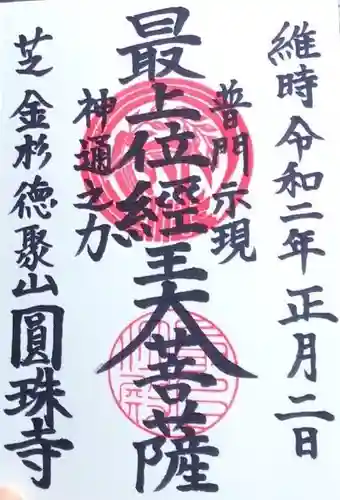 維時令和二年正月二日
普門示現
最上位經王大菩薩
神通之力
芝金杉德聚山圓珠寺